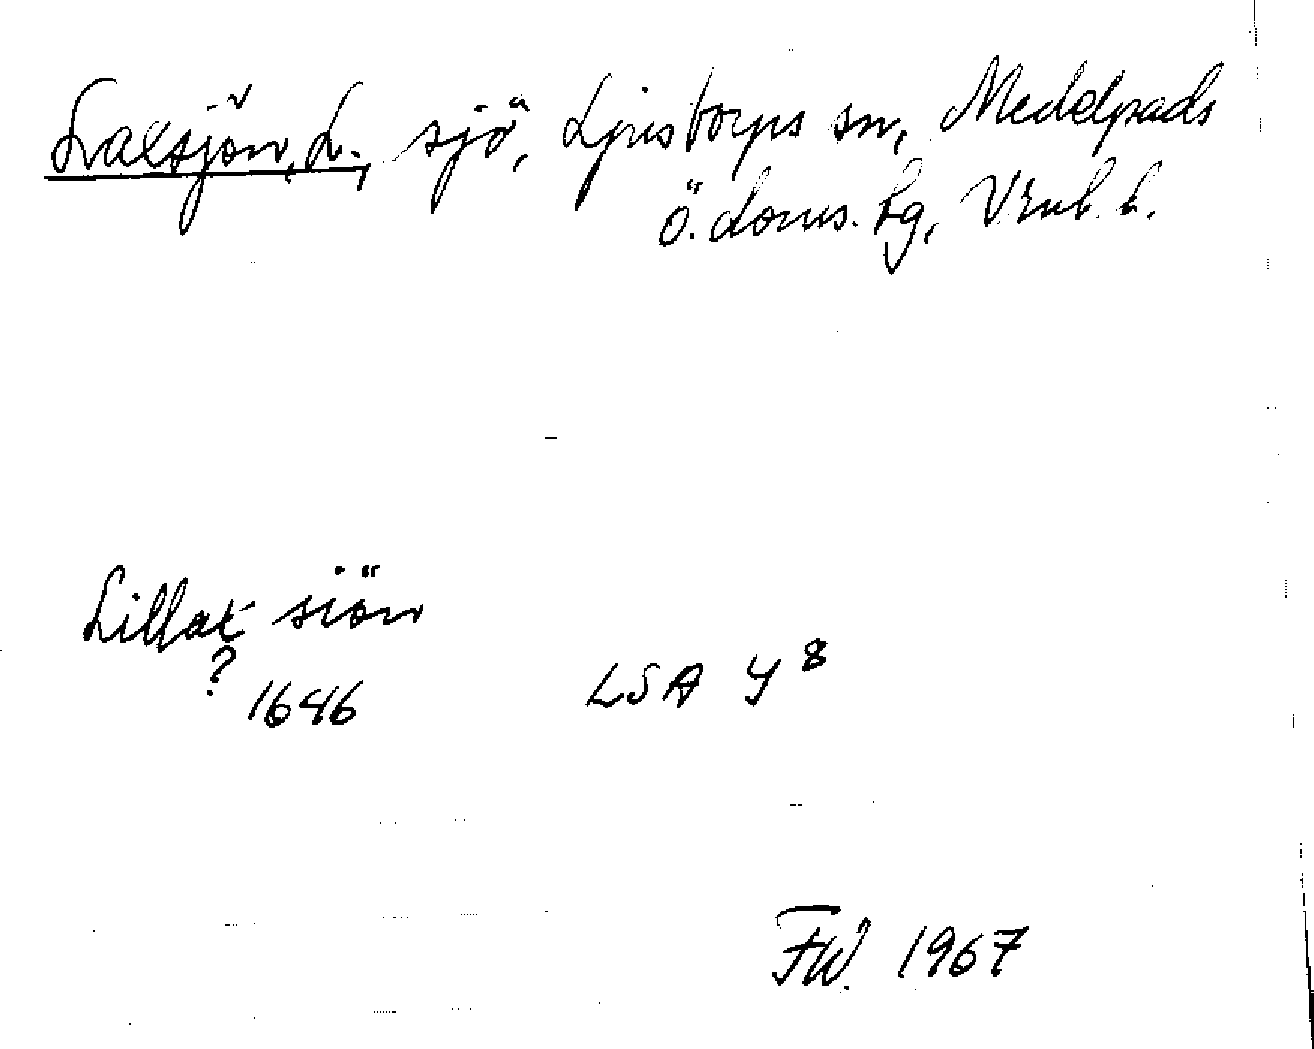 Laxsjön, L., sjö, Ljustorps sn, Medelpads
ö. doms. tg, Vrnl. l.
Lillax siön
?
1646 LSA Y 8
FW. 1967